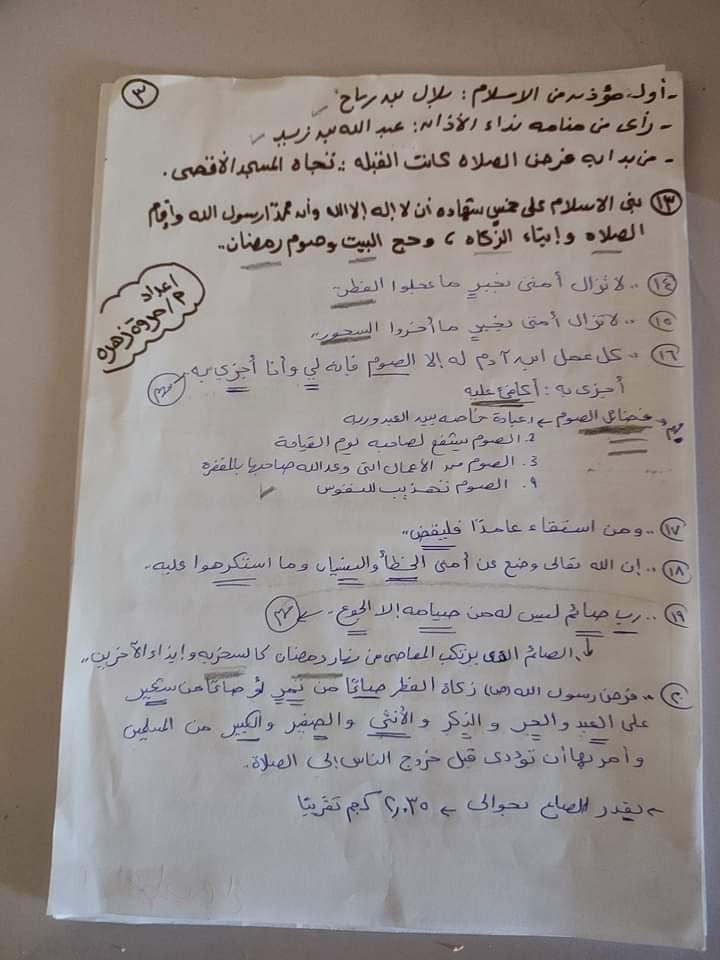 ٣
- أول مؤذن من الاسلام : بلال بن رباح
- رأى من منامه نداء الأذان : عبد الله بن زيد
- من بدايه فرض الصلاه كانت القبله .. تجاه المسجد الأقصى .
١٣ بنى الاسلام على خمس شهاده أن لا إله إلا الله وأن محمدًا رسول الله وإقام
الصلاه و إيتاء الزكاه ، وحج البيت وصوم رمضان ..
إعداد
م / مروة زهره
١٤ .. لا تزال أمتى بخيرٍ ما عجلوا الفطر
١٥ .. لا تزال أمتى بخيرٍ ما أخروا السحور ..
١٦ .. كل عمل ابن آدم له إلا الصوم فإنه لي وأنا أجزي به ..
أجزى به : أكافئ عليه
مهم
فضائل الصوم ← ١. عبادة خاصه بين العبد وربه
2. الصوم يشفع لصاحبه يوم القيامة
3. الصوم من الأعمال التى وعد الله صاحبها بالمغفرة
٩. الصوم تهذيب للنفوس
١٧ .. ومن استقاء عامدًا فليقض ..
١٨ .. إن الله تعالى وضع عن أمتى الخطأ والنسيان وما استكرهوا عليه .
١٩ .. رب صائم ليس له من صيامه إلا الجوع . ← مهم
↓ .. الصائم الذى يرتكب المعاصى من نهار رمضان كالسخريه وإيذاء الآخرين ..
٢٠ .. فرض رسول الله (ص) زكاة الفطر صاعًا من تمرٍ أو صاعًا من شعير
على العبد والحر و الذكر و الأنثى والصغير والكبير من المسلمين
وأمر بها أن تؤدى قبل خروج الناس إلى الصلاة .
← يقدر الصاع بحوالى ← ٢,٠٣٥ كجم تقريبًا